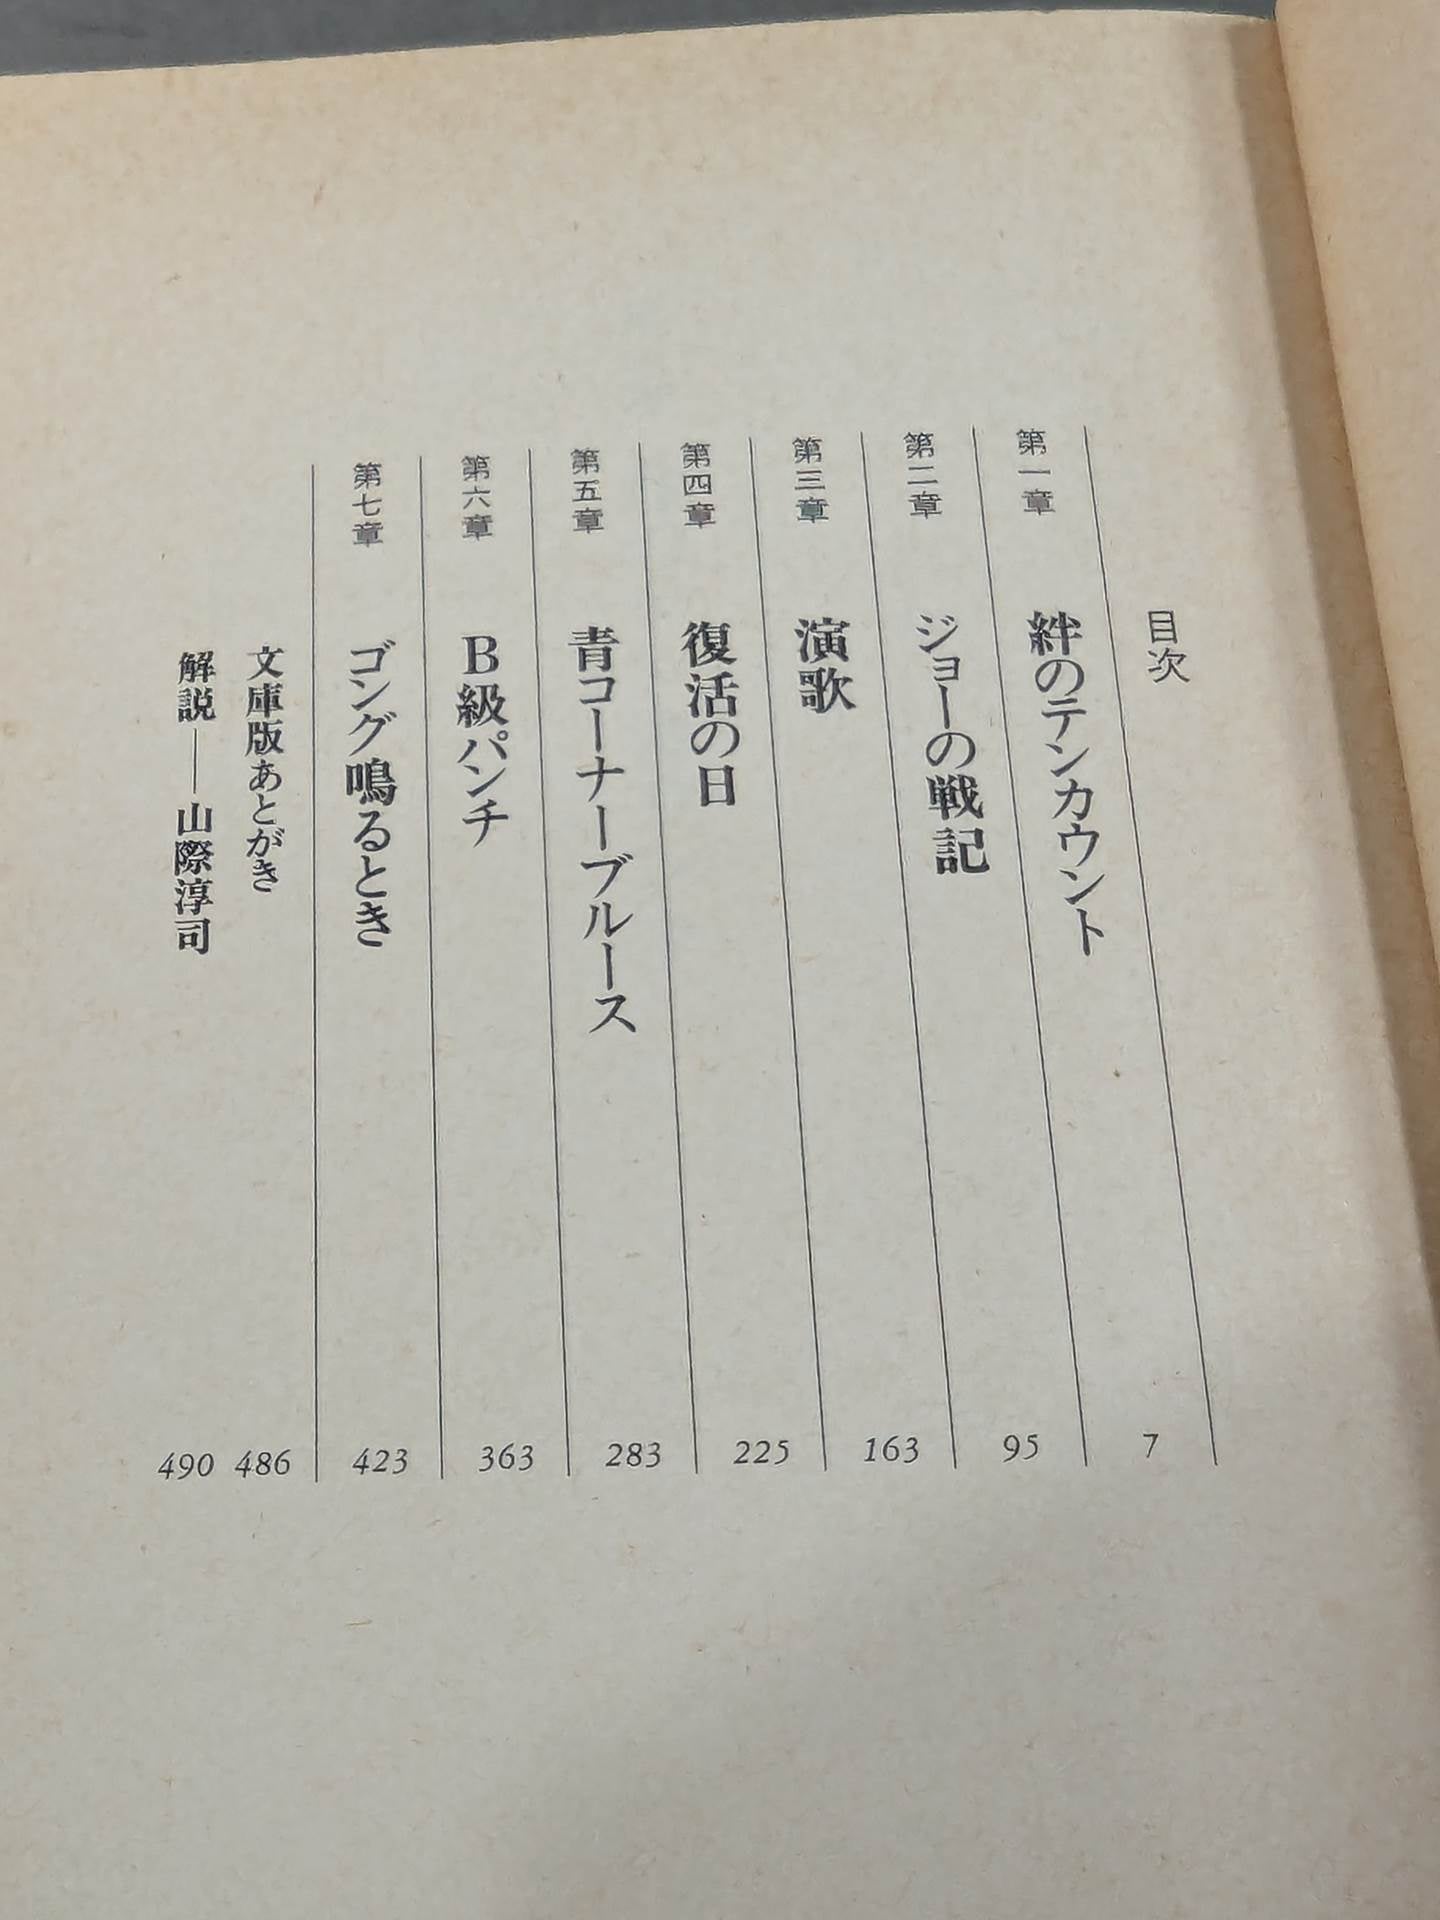 目次
第一章 絆のテンカウント 7
第二章 ジョーの戦記 95
第三章 演歌 163
第四章 復活の日 225
第五章 青コーナーブルース 283
第六章 B級パンチ 363
第七章 ゴング鳴るとき 423
文庫版あとがき 486
解説――山際淳司 490